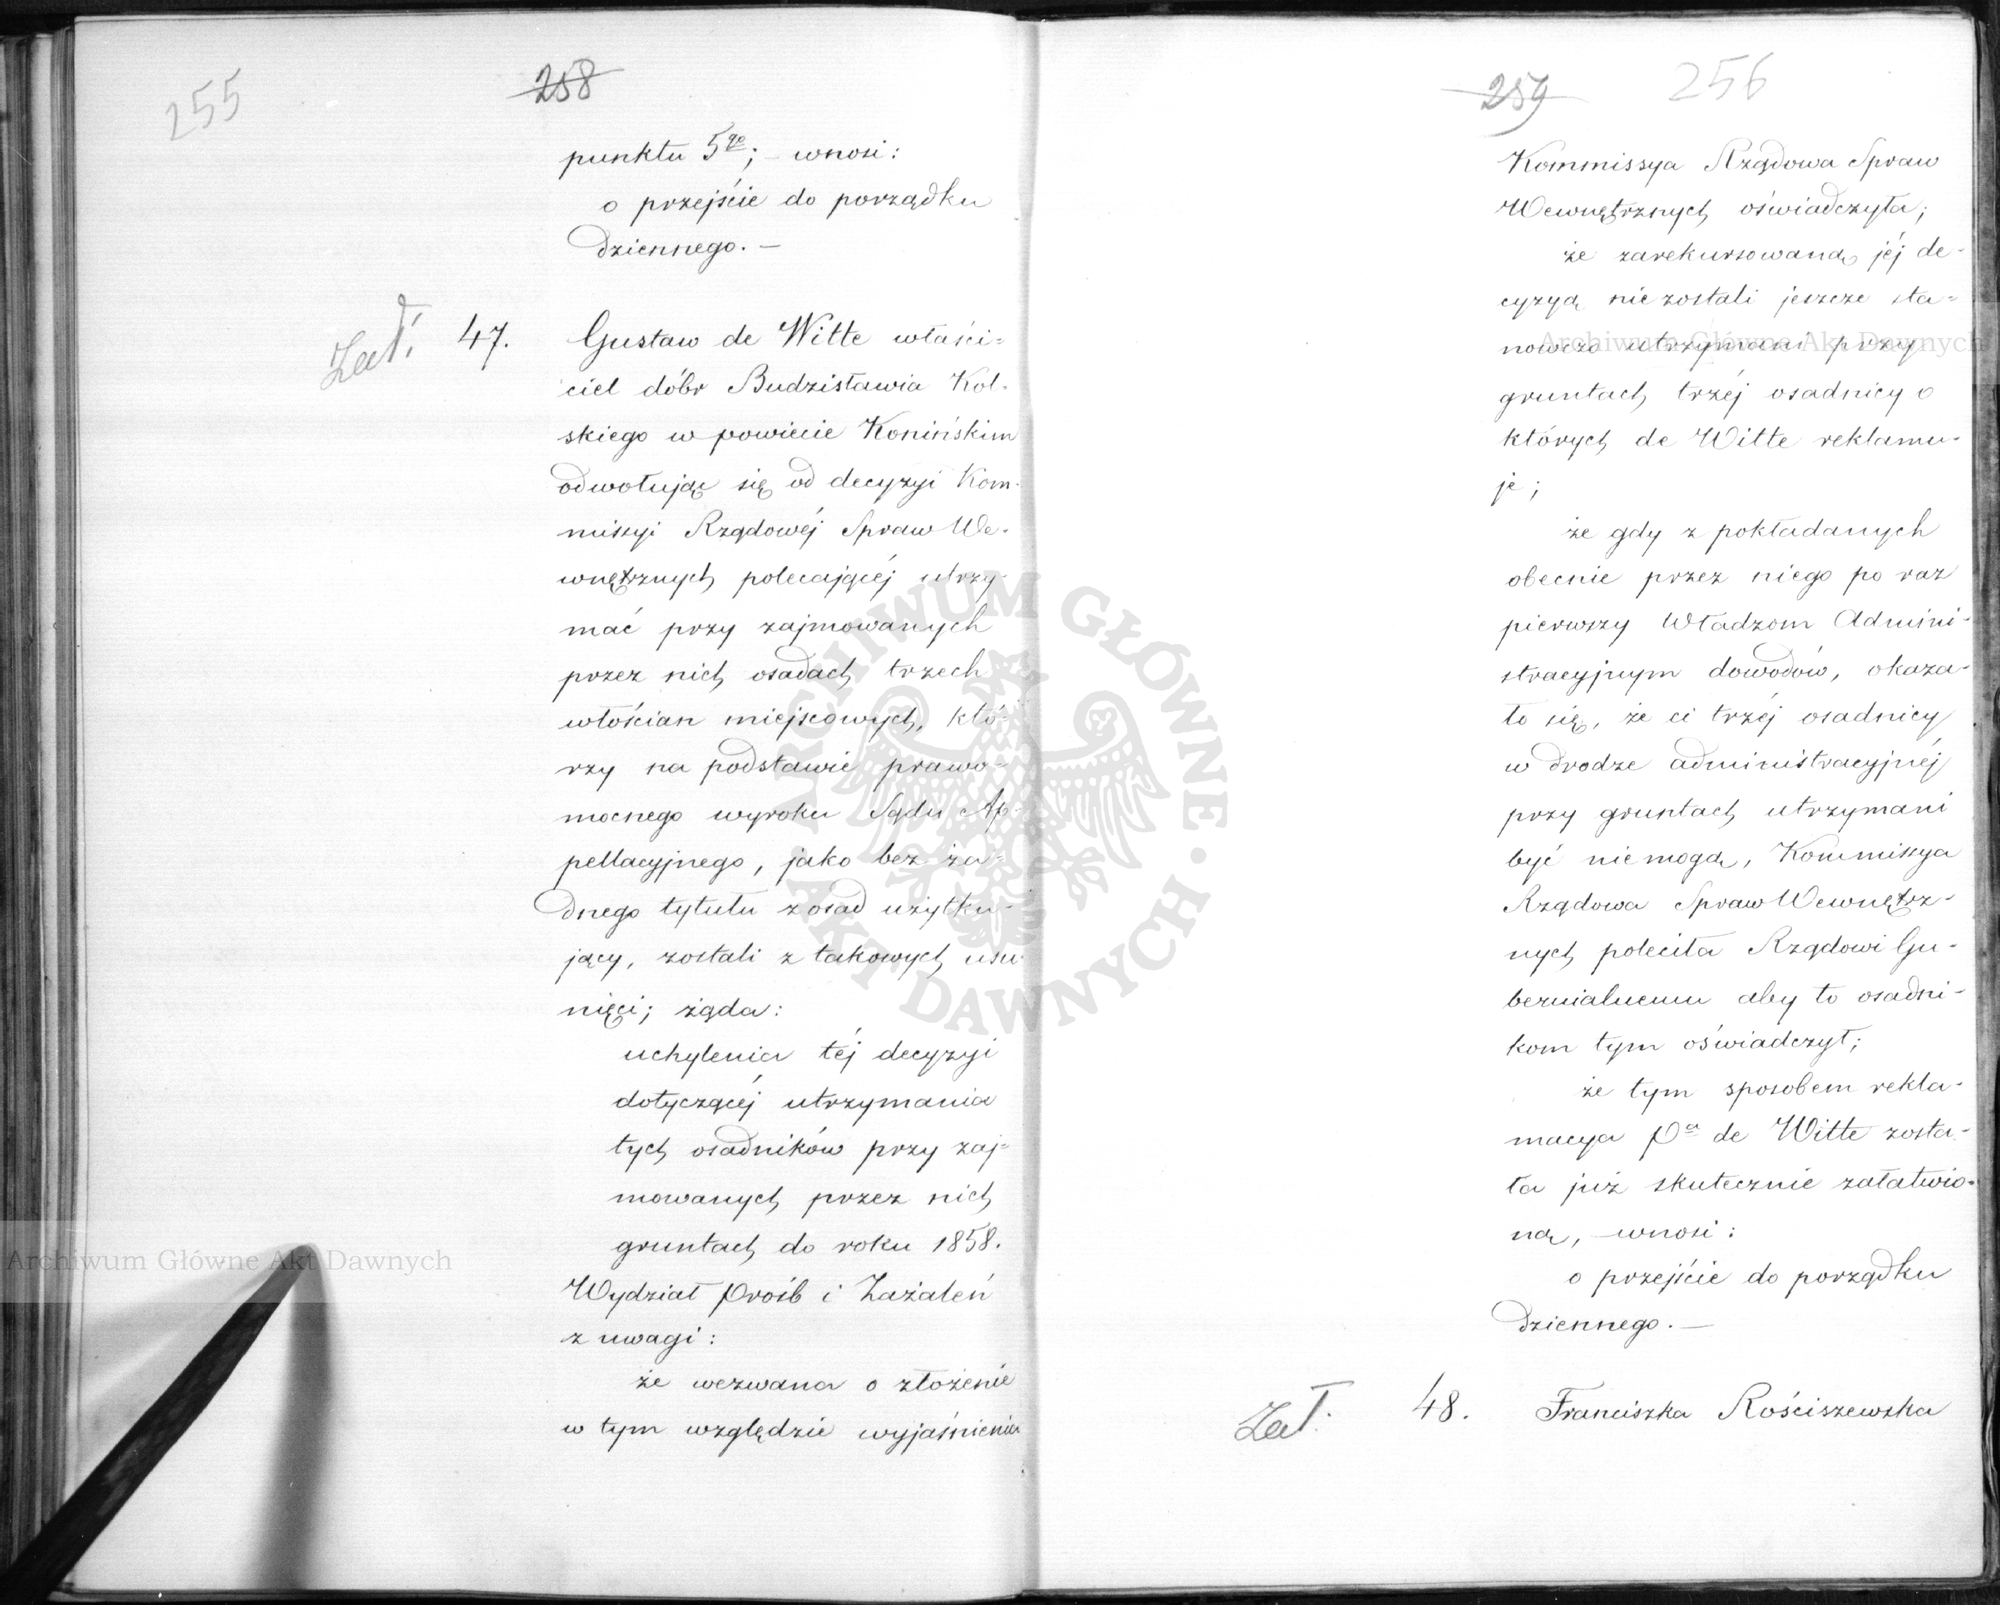 255
258
punktu 5go; – wnosi:
o przejście do porządku
dziennego. –
Zał. 47. Gustaw de Witte właści=
ciel dóbr Budzisławia Kol-
skiego w powiecie Konińskim
odwołując się od decyzyi Kom-
missyi Rządowéj Spraw We-
wnętrznych polecającéj utrzy-
mać przy zajmowanych
przez nich osadach trzech
włościan miejscowych, któ-
rzy na podstawie prawo-
mocnego wyroku Sądu Ap-
pellacyjnego, jako bez ża-
dnego tytułu z osad użytku-
jący, zostali z takowych usu
nięci; żąda:
uchylenia téj decyzyi
dotyczącéj utrzymania
tych osadników przy zaj=
mowanych przez nich
gruntach do roku 1858.
Wydział Próśb i Zażaleń
z uwagi:
że wezwana o złożenie
w tym względzie wyjaśnienia
259
256
Kommissya Rządowa Spraw
Wewnętrznych oświadczyła;
że zarekursowaną jéj de-
cyzyą nie zostali jeszcze sta=
nowczo utrzymani przy
gruntach trzéj osadnicy o
których de Witte reklamu-
je;
że gdy z pokładanych
obecnie przez niego po raz
pierwszy Władzom Admini-
stracyjnym dowodów, okaza-
ło się, że ci trzéj osadnicy
w drodze administracyjnéj
przy gruntach utrzymani
być nie mogą, Kommissya
Rządowa Spraw Wewnętrz-
nych poleciła Rządowi Gu-
bernialnemu aby to osadni-
kom tym oświadczył;
że tym sposobem rekla-
macya Pa de Witte zosta-
ła już skutecznie załatwio-
ną, – wnosi:
o przejście do porządku
dziennego. –
Zał. 48. Franciszka Rościszewska
Archiwum Główne Akt Dawnych
Archiwum Główne Akt Dawnych
ARCHIWUM GŁÓWNE · AKT DAWNYCH ·